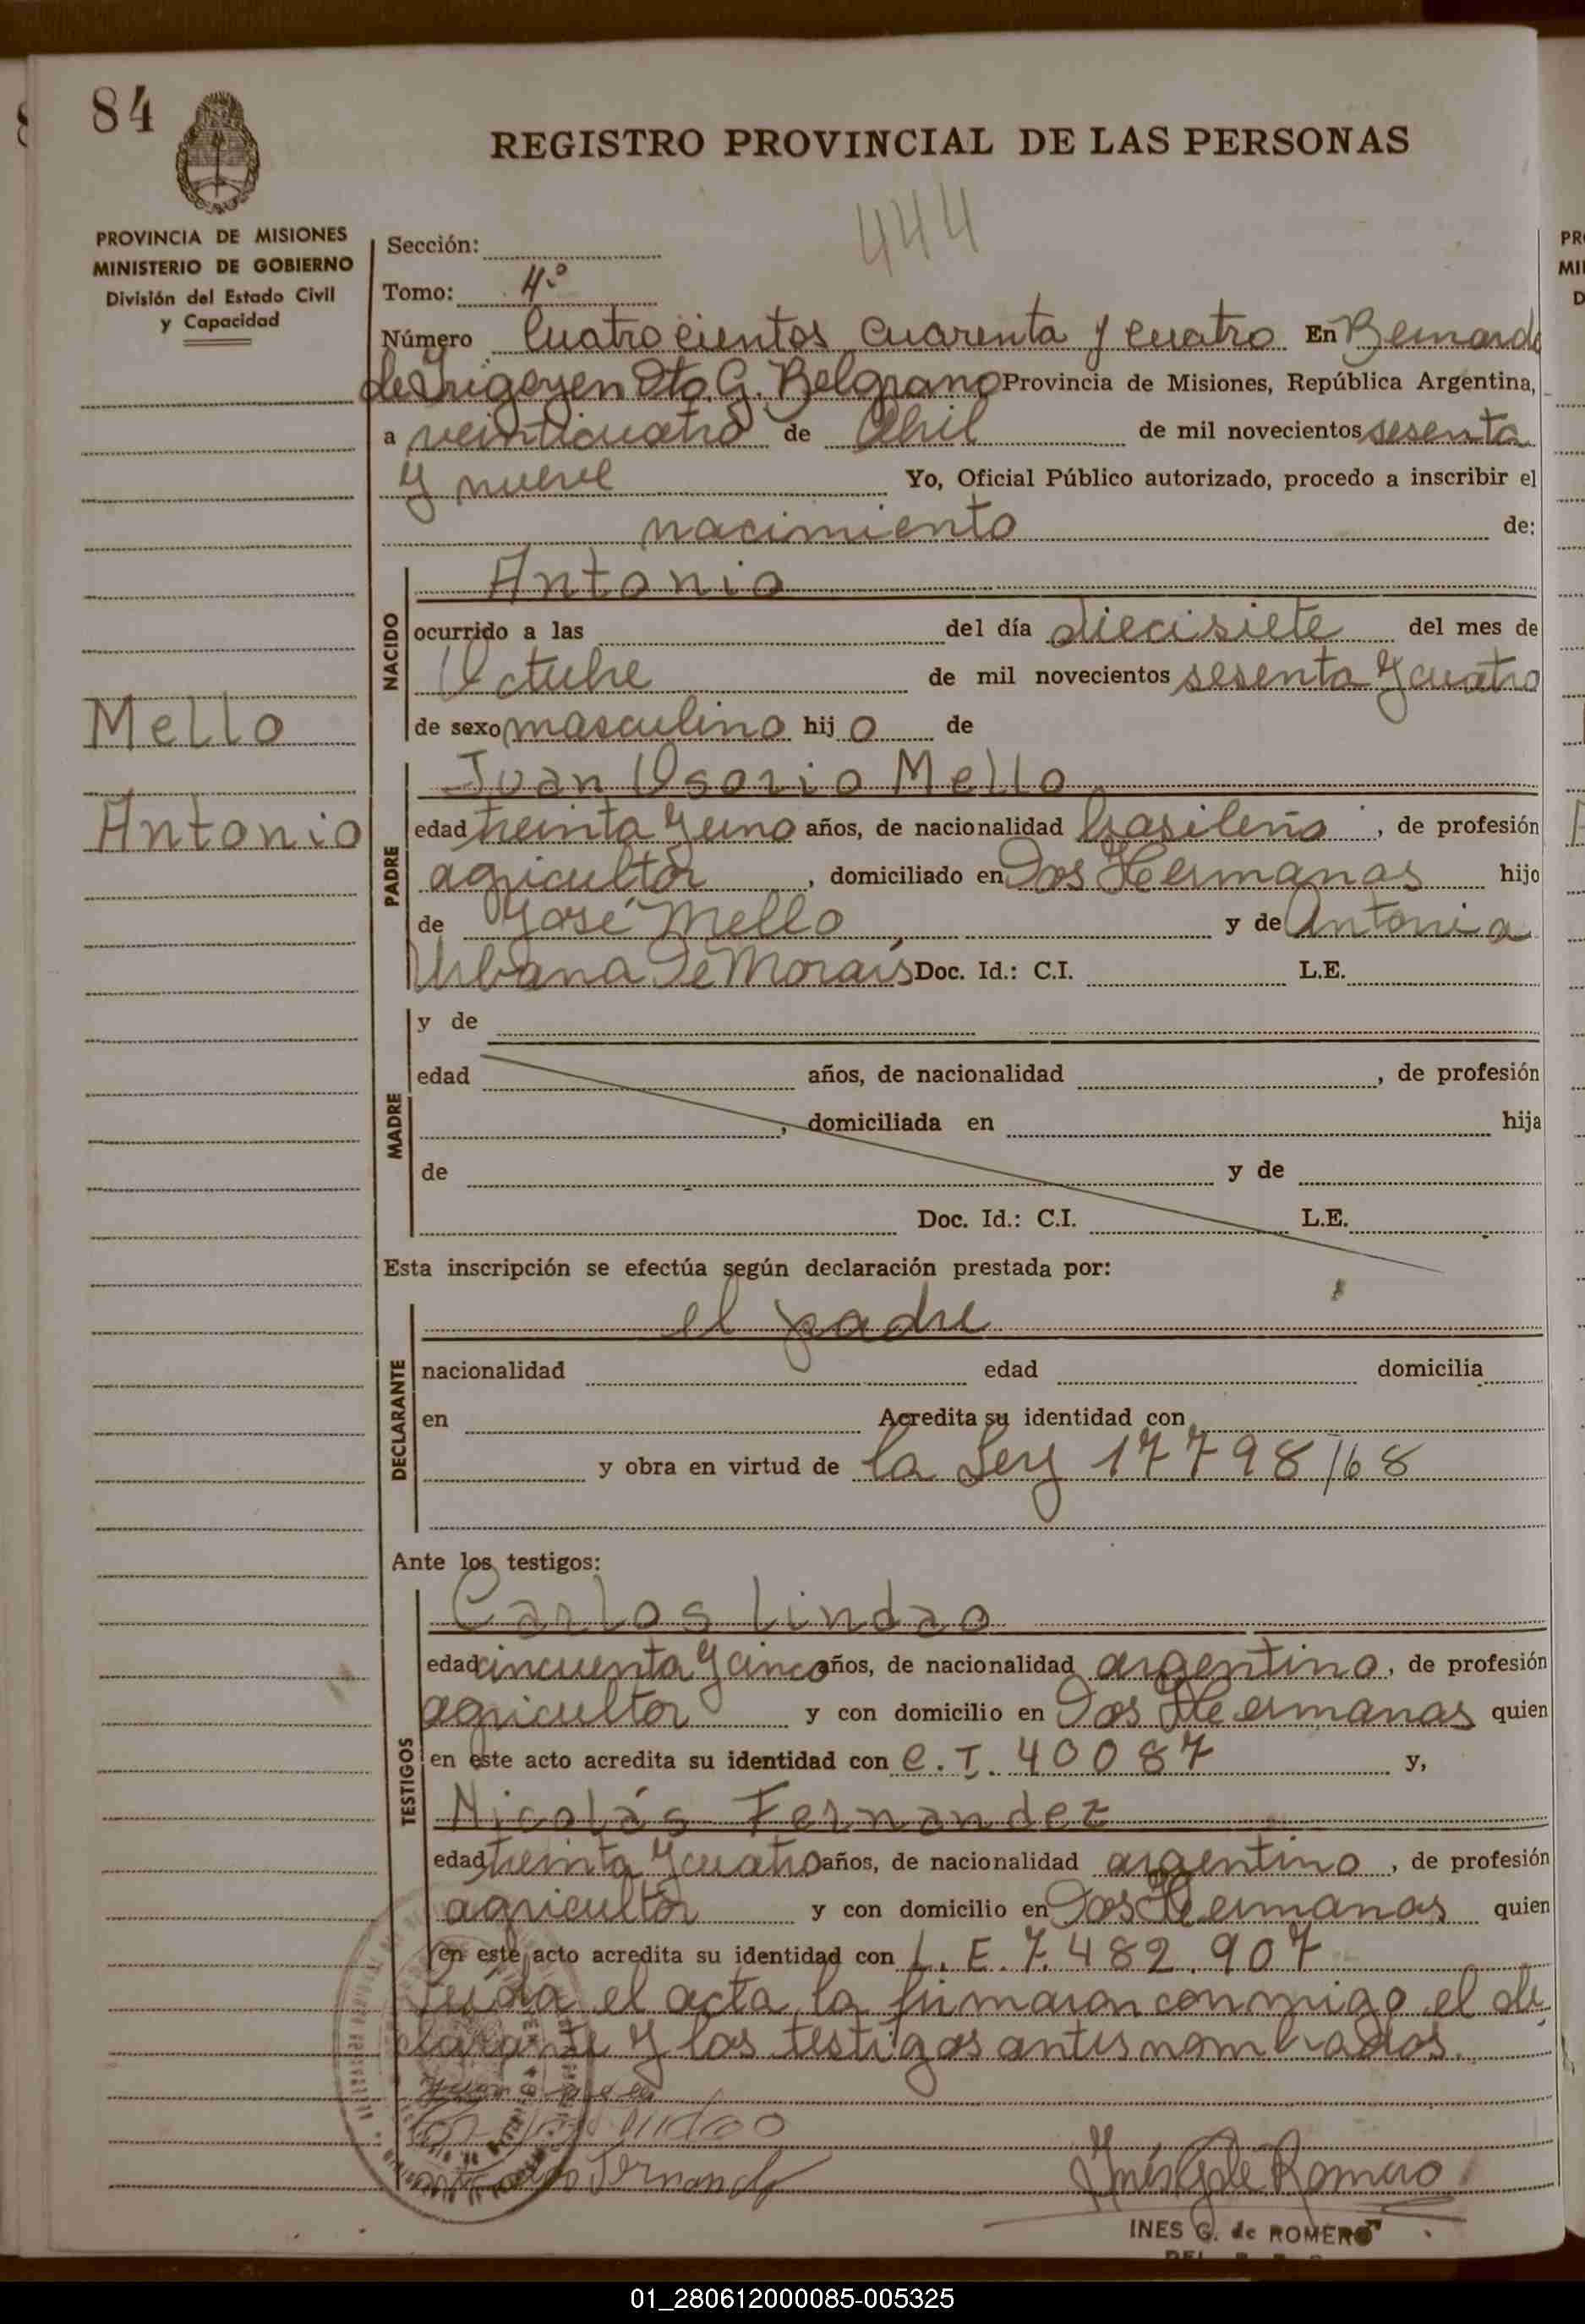 84
REGISTRO PROVINCIAL DE LAS PERSONAS
444
PROVINCIA DE MISIONES
MINISTERIO DE GOBIERNO
División del Estado Civil
y Capacidad
Sección:
Tomo: 4.º
Número Cuatrocientos cuarenta y cuatro En Bernardo
de Irigoyen Dto. G. Belgrano Provincia de Misiones, República Argentina,
a veinticuatro de Abril de mil novecientos sesenta
y nueve Yo, Oficial Público autorizado, procedo a inscribir el
nacimiento de:
NACIDO
Antonio
ocurrido a las del día diecisiete del mes de
Octubre de mil novecientos sesenta y cuatro
de sexo masculino hijo de
Mello
Antonio
PADRE
Juan Osorio Mello
edad treinta y uno años, de nacionalidad brasileña, de profesión
agricultor, domiciliado en Dos Hermanas hijo
de José Mello y de Antonia
Urbana De Morais Doc. Id.: C.I. L.E.
MADRE
y de
edad años, de nacionalidad , de profesión
, domiciliada en hija
de y de
Doc. Id.: C.I. L.E.
Esta inscripción se efectúa según declaración prestada por:
DECLARANTE
el padre
nacionalidad edad domicilia
en Acredita su identidad con
y obra en virtud de la Ley 17798/68
Ante los testigos:
TESTIGOS
Carlos Lindao
edad cincuenta y cinco años, de nacionalidad argentino, de profesión
agricultor y con domicilio en Dos Hermanas quien
en este acto acredita su identidad con C.I. 40087 y,
Nicolás Fernandez
edad treinta y cuatro años, de nacionalidad argentino, de profesión
agricultor y con domicilio en Dos Hermanas quien
en este acto acredita su identidad con L.E. 7.482.907
Leída el acta la firmaron conmigo el de
clarante y los testigos antes nombrados.
Inés G de Romero
INES G. de ROMERO
01_280612000085-005325